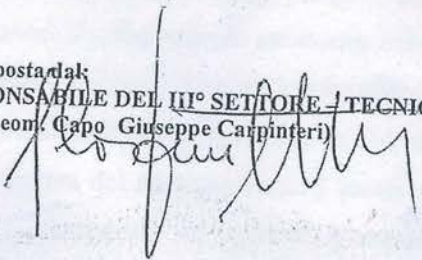 posta dal:
ONSABILE DEL III° SETTORE – TECNIC
eom. Capo Giuseppe Carpinteri)